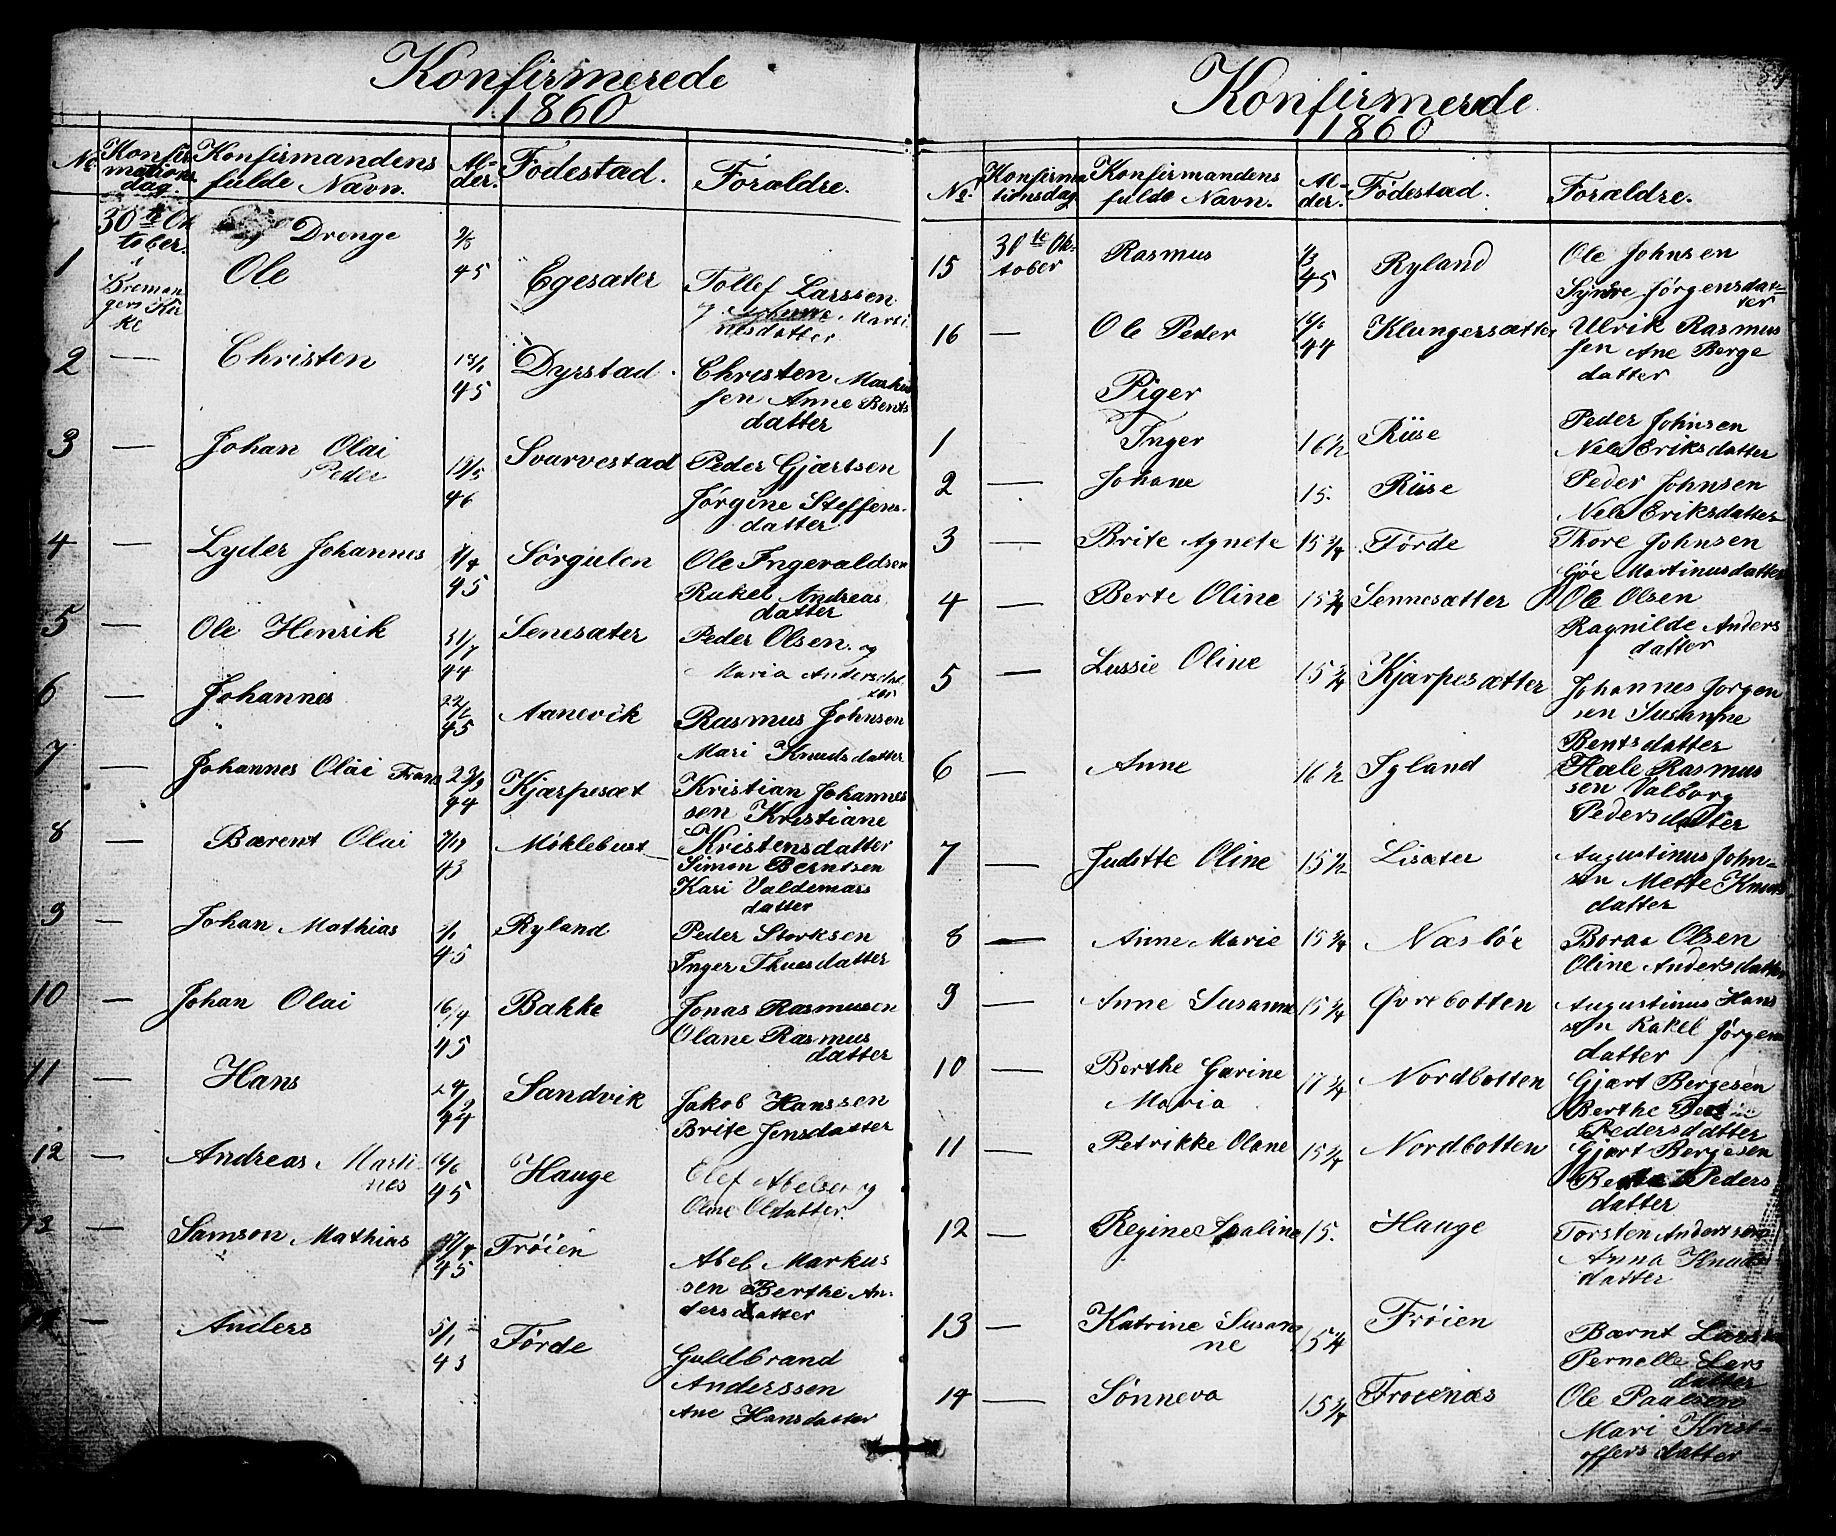 Konfirmerede
1860
No
Konfir
mations
dag.
Konfirmandens
fulde Navn.
Al-
der.
Fødestad.
Foræeldre.
30te Ok
tober.
i
Breman
gers Kir
ke
Drenge
1 Ole 45 Egesæter Tollef Larssen
og Marti
nesdatter
2 — Christen 45 Dyrstad. Christen Marku
sen Anne Bents
datter
3 — Johan Olai 18/5 Svarvestad Peder Gjærtsen
Peder
46 Jørgine Steffens-
datter
4 — Lyder Johannes 1/4 Sørgulen Ole Ingevaldsen
45 Rakel Andreas
datter
5 — Ole Henrik 31/7 Senesæter Peder Olsen og
44 Maria Andersdat
ter
6 — Johannes 45 Aanevik Rasmus Johnsen
Mari Knudsdatter
7 — Johannes Olai Frans 23/9 Kjærpesæt Kristian Johannes
44 sen Kristiane
Kristensdatter
8 — Bærent Olai Møklebust Simon Berntsen
43 Kari Valdemars
datter
9 — Johan Mathias 2/1 Ryland Peder Storksen
45 Inger Thuesdatter
10 — Johan Olai 16/4 Bakke Jonas Rasmussen
45 Olane Rasmus
datter
11 — Hans 24/9 Sandvik Jakob Hanssen
44 Brite Jensdatter
12 — Andreas Marti 16/6 Hauge Elef Abelsen og
nes 45 Oline Olsdatter.
13 — Samson Mathias 17/4 Frøien Abel Markus
45 sen Berthe An-
dersdatter
14 — Anders 5/1 Førde Guldbrand
45 Anderssen
Ane Hansdatter
Konfirmerede
1860
No
Konfirma
tionsdag
Konfirmandens
fulde Navn.
Al-
der.
Fødestad.
Forældre.
15 30te Ok- Rasmus 45 Ryland Ole Johnsen
tober Synve Jørgensdat-
ter
16 — Ole Peder 44 Klungersætter Ulrik Rasmus
sen Ane Berge
datter
Piger
1 Inger 16½ Riise Peder Johnsen
Nele Eriksdatter
2 — Johane 15. Riise Peder Johnsen
Nele Eriksdatter
3 — Brite Agnete 15¾ Førde Thore Johnsen
Gjøe Martinusdatter
4 — Berte Oline 15¾ Sennesætter Ole Olsen
Ragnilde Anders
datter
5 — Lussie Oline 15¾ Kjærpesætter Johannes Jørgen
sen Susanne
Bentsdatter
6 — Anne 16½ Igland Hæle Rasmus
sen Valborg
Pedersdatter
7 — Judette Oline 15½ Lisæter Augustinus John-
sen Mette Knuds
datter
8 — Anne Marie 15¾ Næsbøe Boraa Olsen
Oline Andersdatter
9 — Anne Susanne 15¾ Øvrebotten Augustinus Hans
sen Rakel Jørgens
datter
10 — Berthe Garine 17¼ Nordbotten Gjært Bergesen
Maria Berthe
Pedersdatter
11 — Petrikke Olane 15¼ Nordbotten Gjært Bergesen
Peders
datter
12 — Regine Paline 15. Hauge Torsten Anderssen
Anna Knuds
datter
13 — Katrine Susan 15¼ Frøien Bærnt Larssen
ne Pernelle Lars
datter
14 — Sønneva 15¼ Frøienæs Ole Paalsen
Mari Krist-
offersdatter